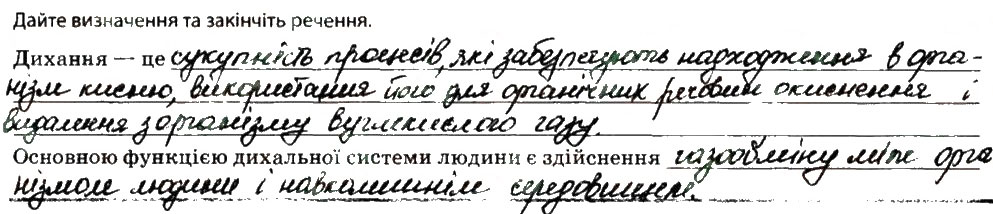 Дайте визначення та закінчіть речення.
Дихання — це сукупність процесів, які забезпечують надходження в орга-
нізм кисню, використання його для органічних речовин окиснення і
видалення з організму вуглекислого газу.
Основною функцією дихальної системи людини є здійснення газообміну між орга
нізмом людини і навколишнім середовищем.